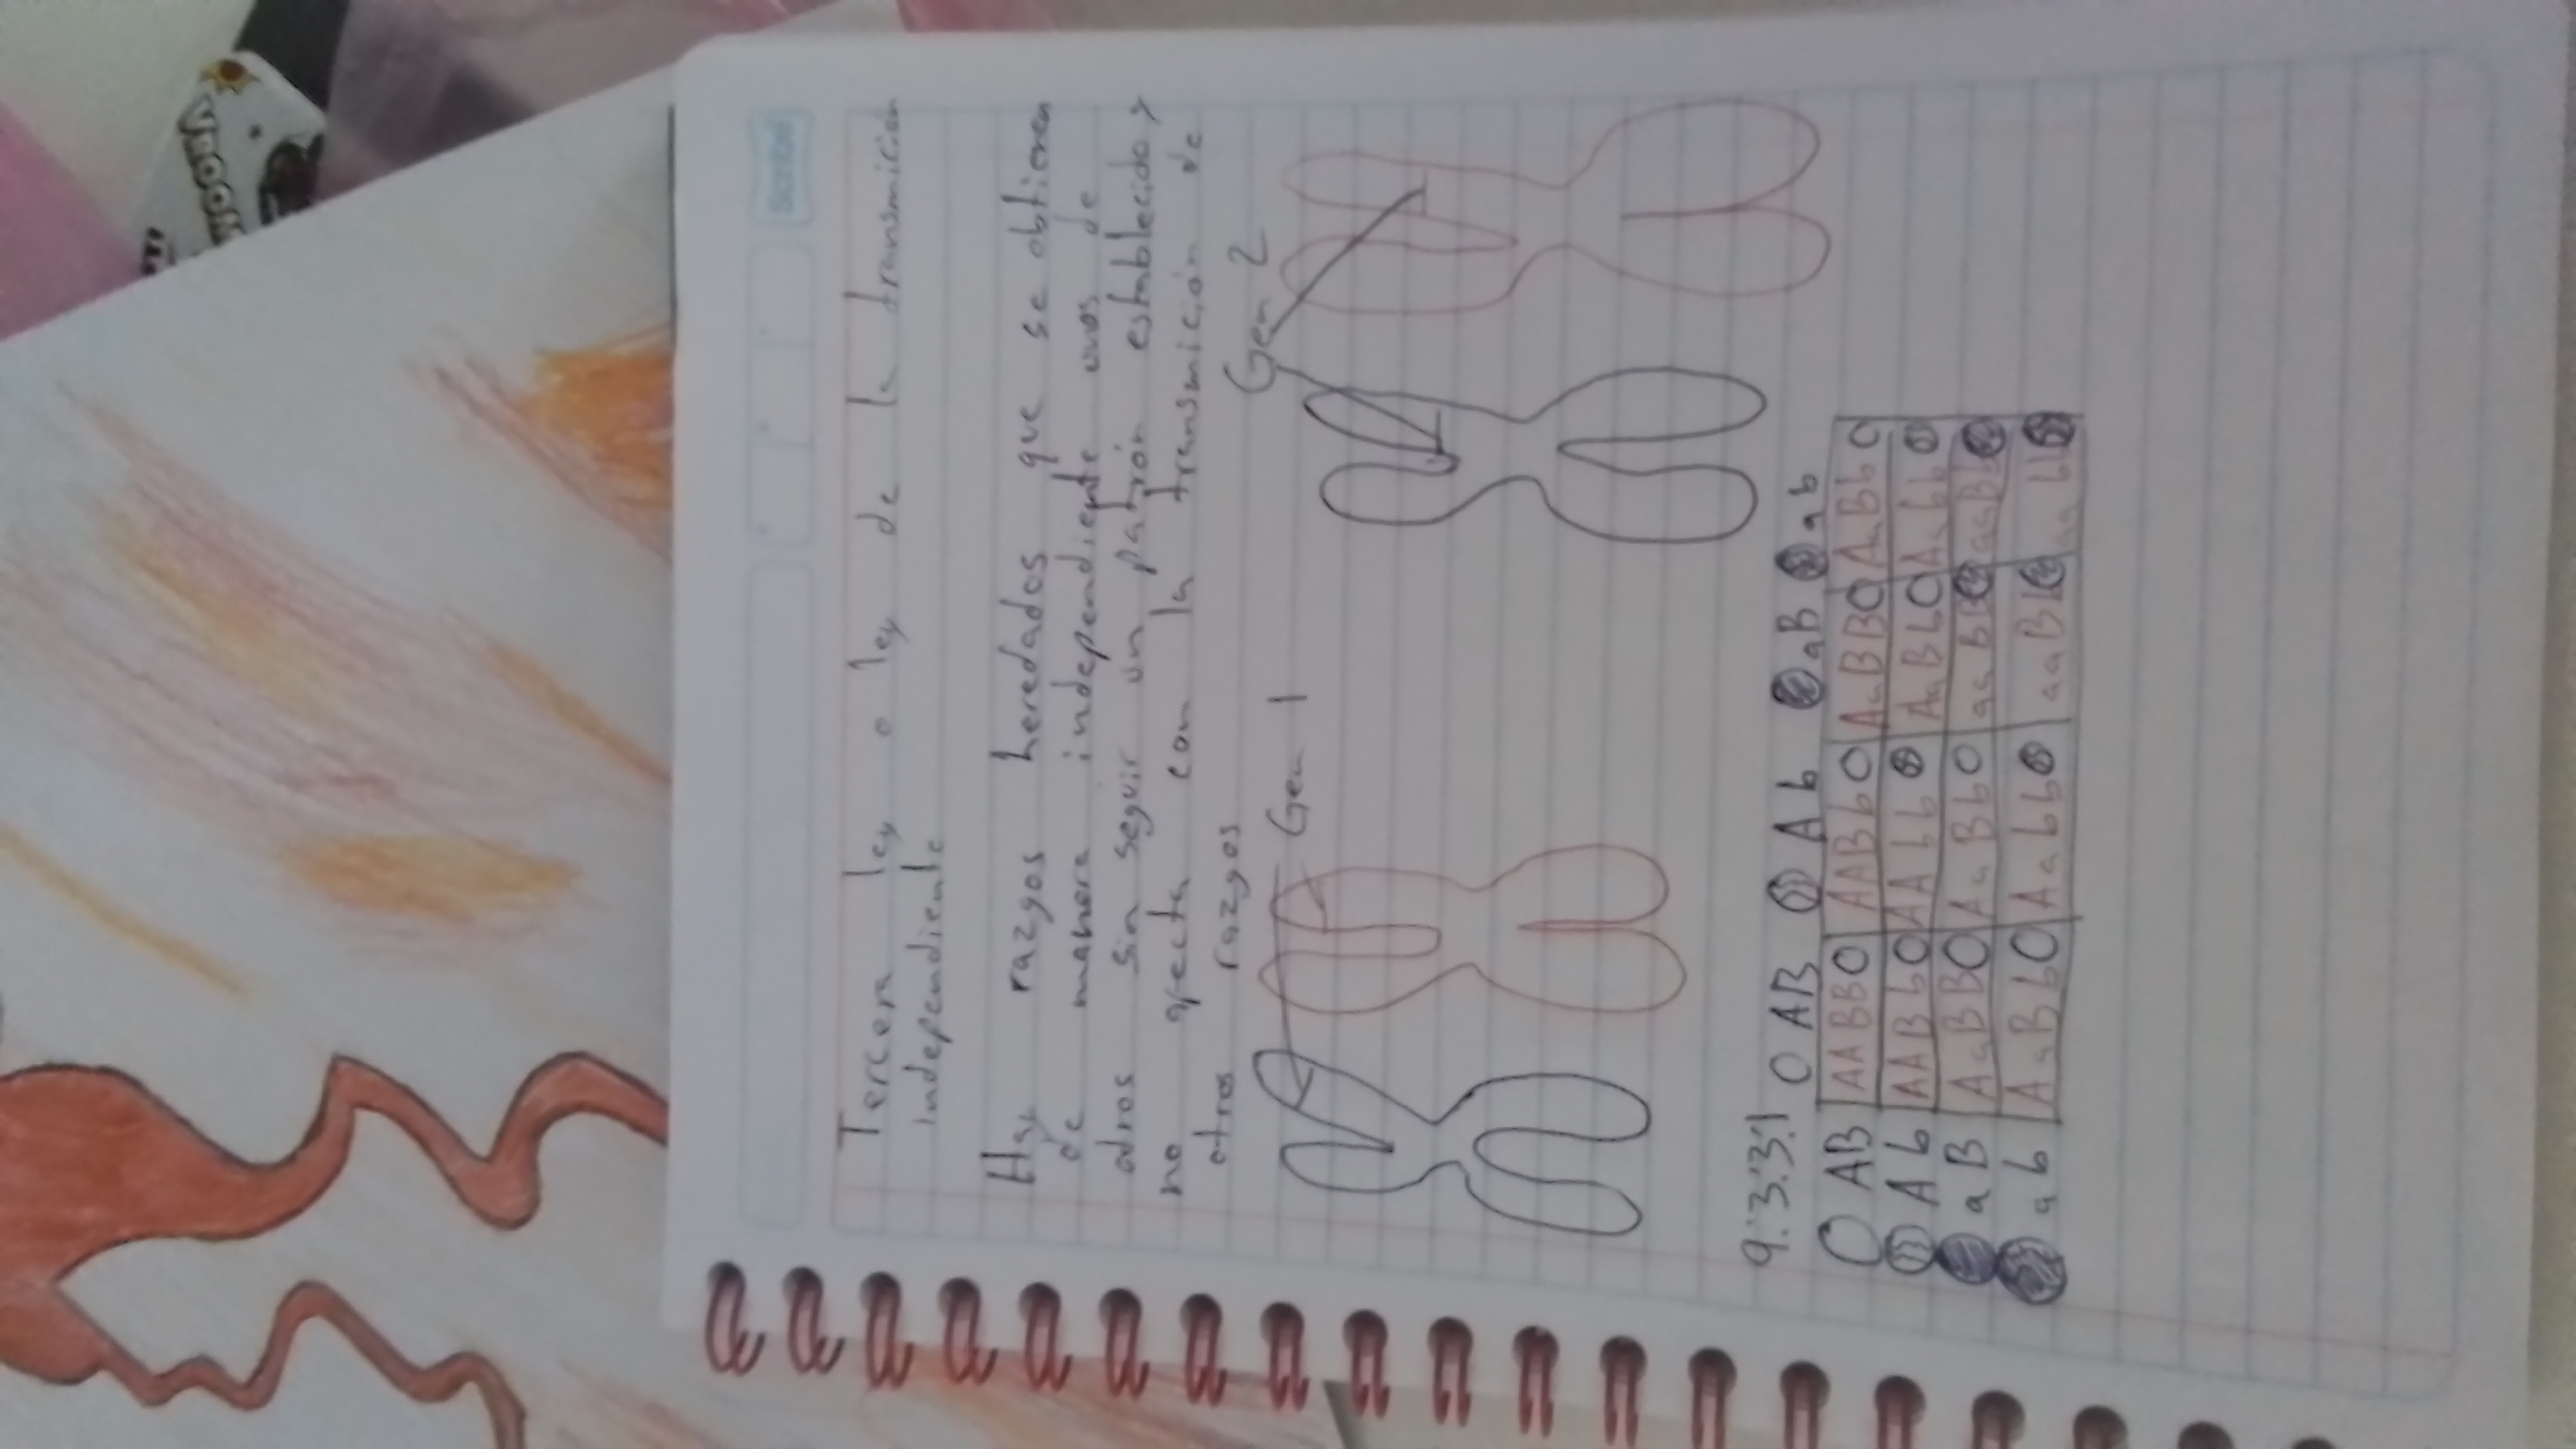 scribe
Tercera ley o ley de la transmición
independiente
Hay razgos heredados que se obtienen
de manera independiente unos de
otros sin seguir un patrón establecido y
no afecta con la transmición de
otros razgos
Gen 1
Gen 2
9:3:3:1
AB Ab aB ab
AB AABB AABb AaBB AaBb
Ab AABb AAbb AaBb Aabb
aB AaBB AaBb aaBB aaBb
ab AaBb Aabb aaBb aabb